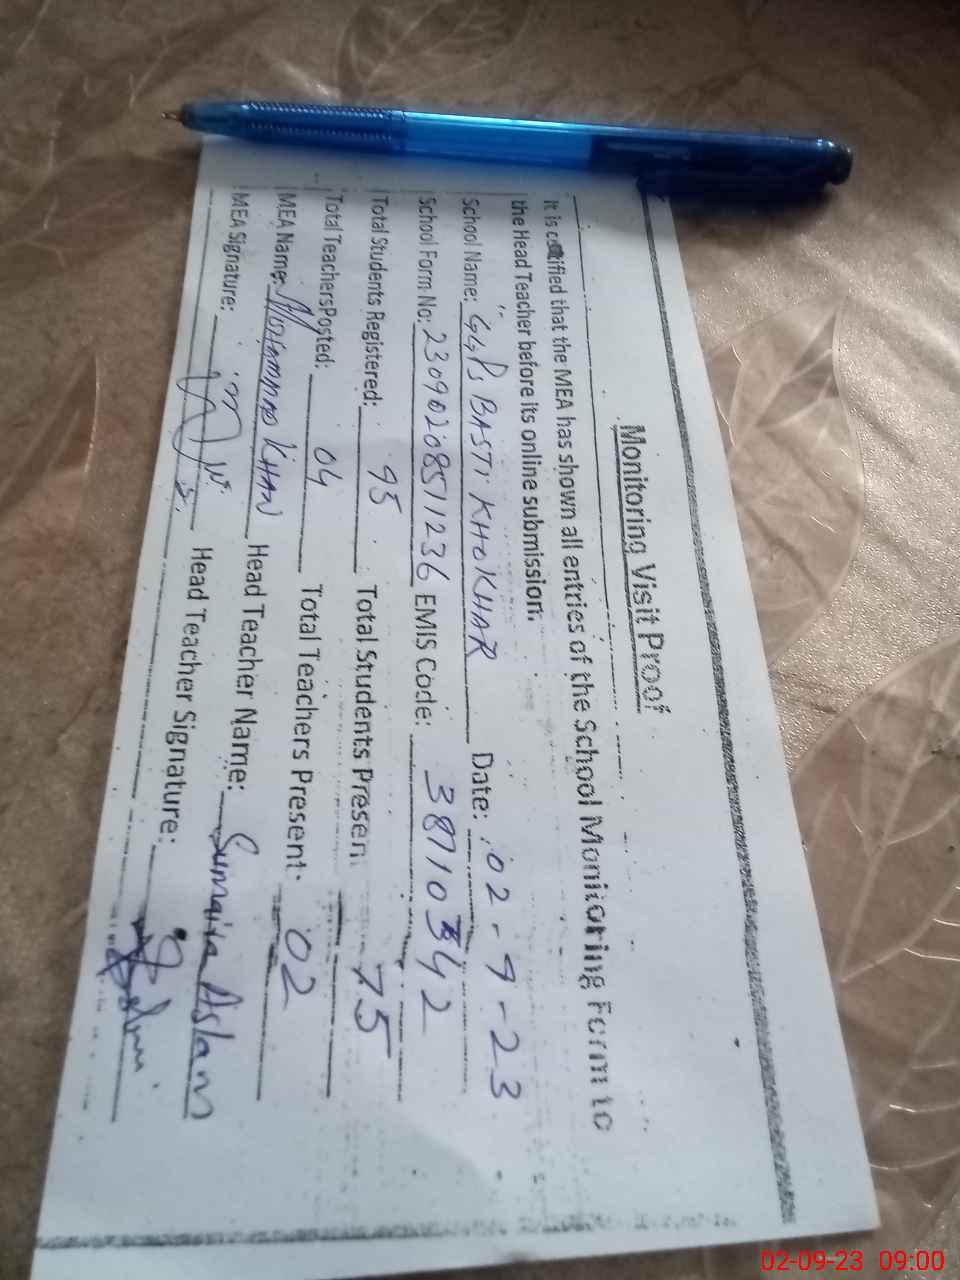 Monitoring Visit Proof
It is certified that the MEA has shown all entries of the School Monitoring Form to
the Head Teacher before its online submission.
School Name: GGPS BASTI KHOKHAR Date: 02-9-23
School Form No: 23090208511236 EMIS Code: 38710342
Total Students Registered: 95 Total Students Present 75
Total TeachersPosted: 04 Total Teachers Present: 02
MEA Name: Mohammad KHAN Head Teacher Name: Sumaira Aslam
MEA Signature: Head Teacher Signature:
02-09-23 09:00